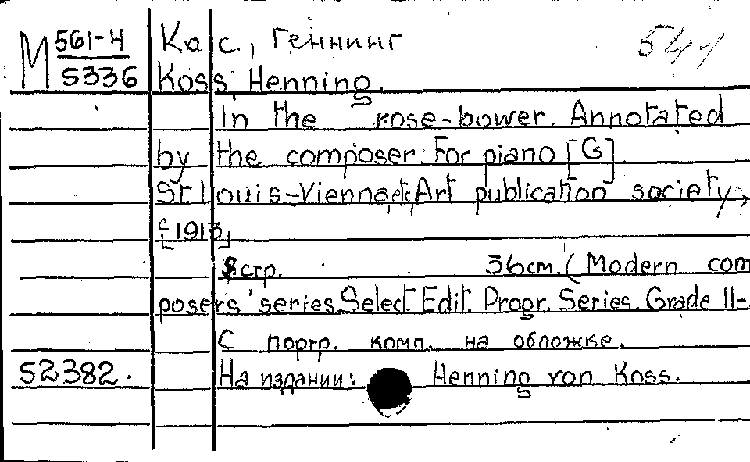 М 561-4 Кас, Геннинг 541
5336 Koss, Henning.
In the rose-bower. Annotated
by the composer. For piano [G].
St Louis-Vienna, etc Art publication society,
[1913]
8 стр. 36 cm. (Modern com
posers' series. Select Edit. Progr. Series. Grade II-
С портр. комп. на обложке.
52382. На издании: Henning von Koss.